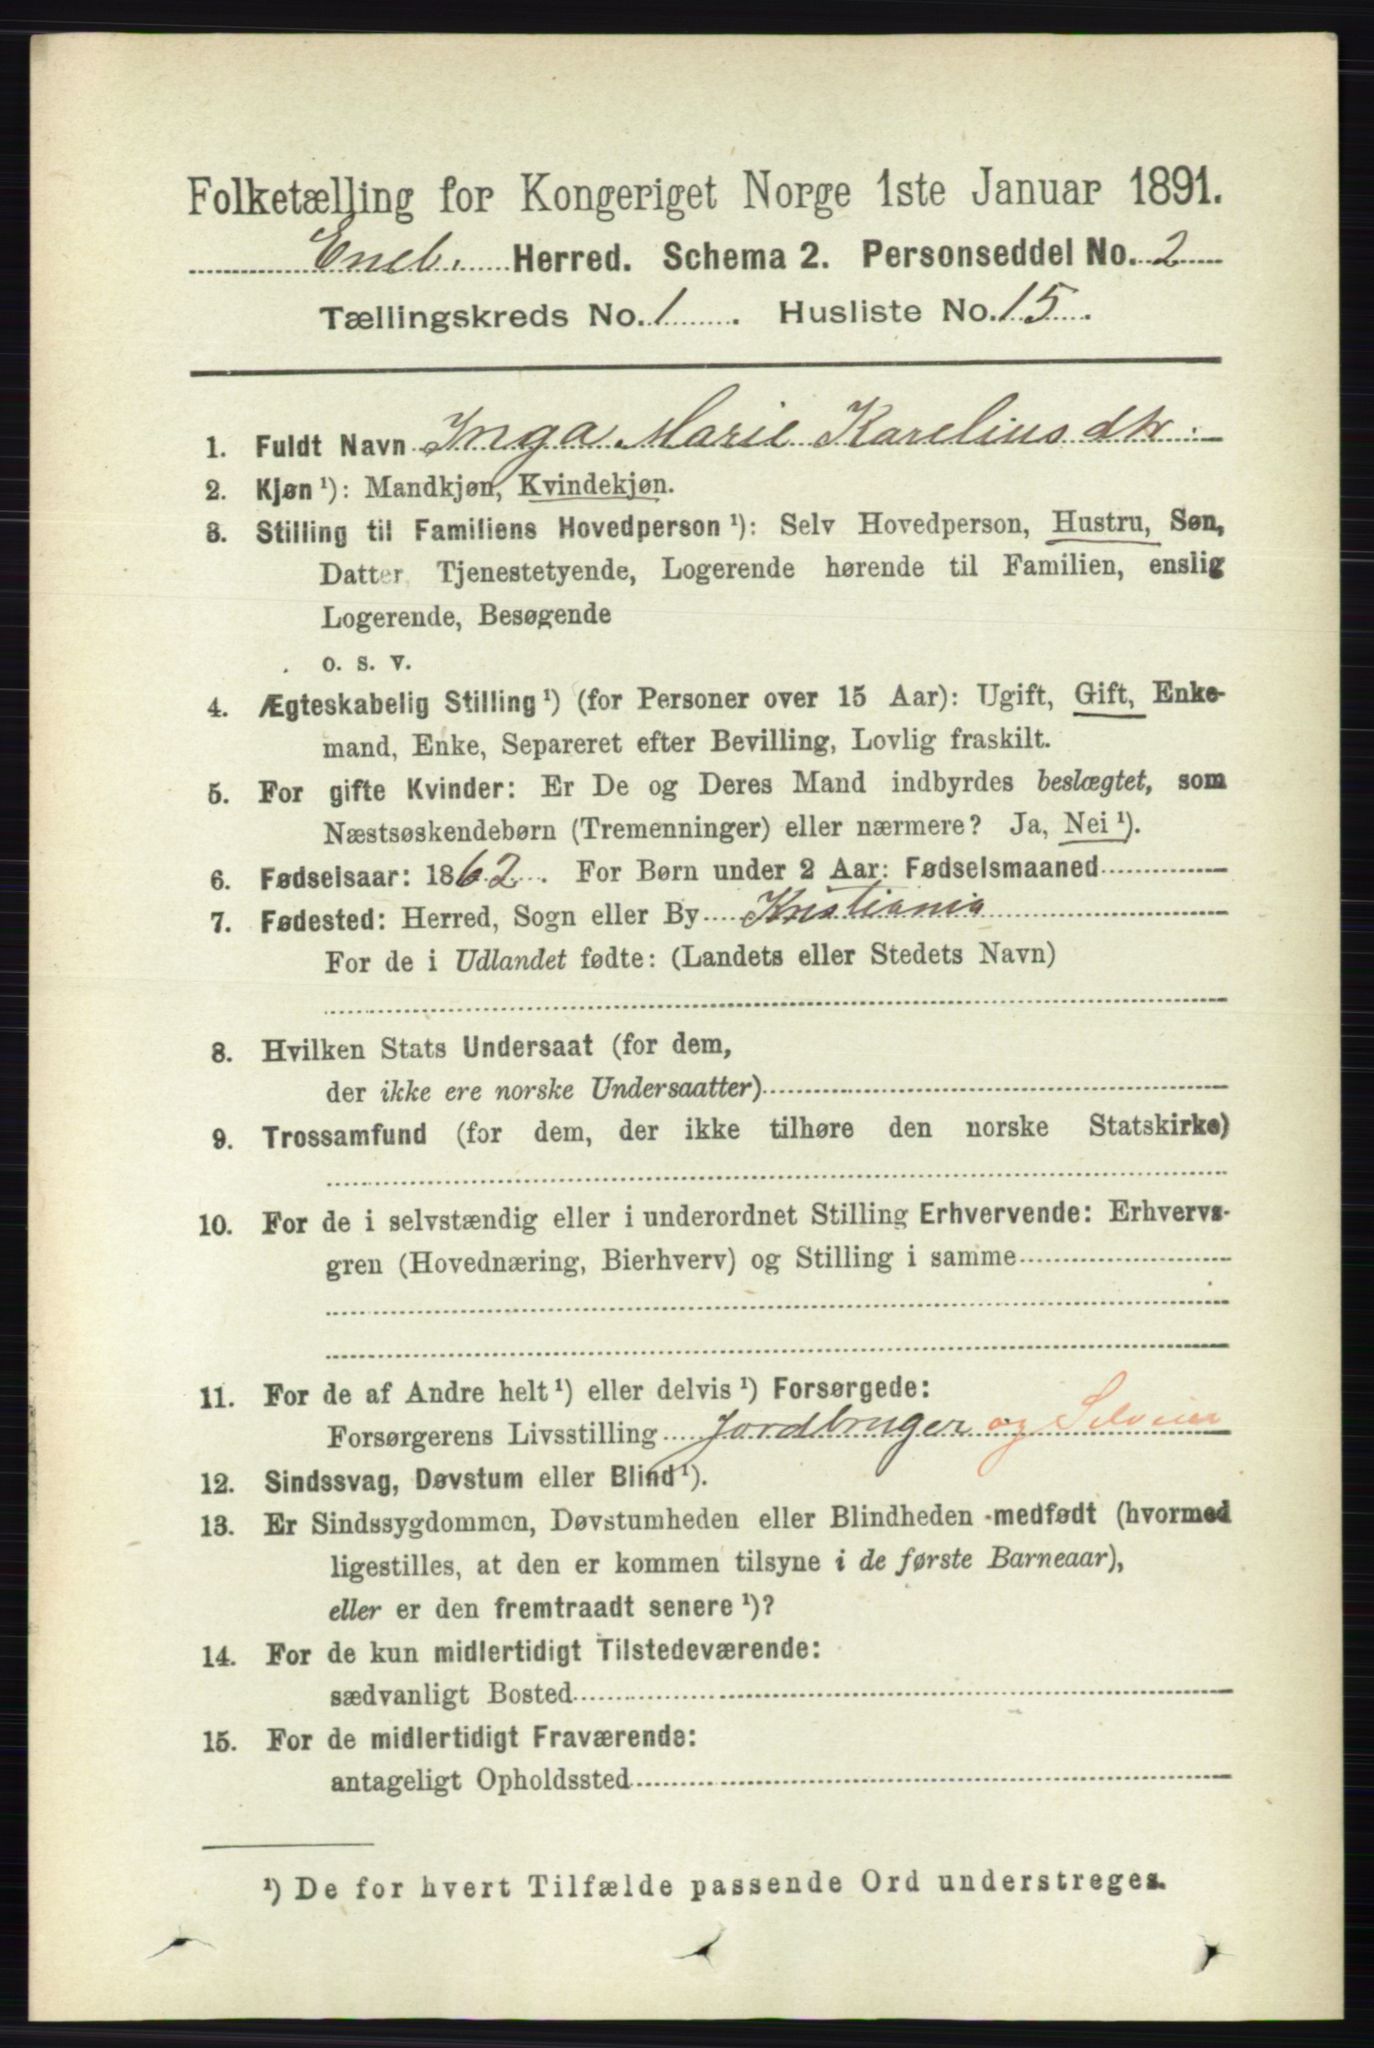 Folketælling for Kongeriget Norge 1ste Januar 1891.
Eneb. Herred. Schema 2. Personseddel No. 2
Tællingskreds No. 1. Husliste No. 15.
1. Fuldt Navn Inga Marie Kareliusdtr.
2. Kjøn ¹): Mandkjøn, Kvindekjøn.
3. Stilling til Familiens Hovedperson ¹): Selv Hovedperson, Hustru, Søn,
Datter, Tjenestetyende, Logerende hørende til Familien, enslig
Logerende, Besøgende
o. s. v.
4. Ægteskabelig Stilling ¹) (for Personer over 15 Aar): Ugift, Gift, Enke-
mand, Enke, Separeret efter Bevilling, Lovlig fraskilt.
5. For gifte Kvinder: Er De og Deres Mand indbyrdes beslægtet, som
Næstsøskendebørn (Tremenninger) eller nærmere? Ja, Nei ¹).
6. Fødselsaar: 1862. For Børn under 2 Aar: Fødselsmaaned
7. Fødested: Herred, Sogn eller By Kristiania
For de i Udlandet fødte: (Landets eller Stedets Navn)
8. Hvilken Stats Undersaat (for dem,
der ikke ere norske Undersaatter)
9. Trossamfund (for dem, der ikke tilhøre den norske Statskirke)
10. For de i selvstændig eller i underordnet Stilling Erhvervende: Erhvervs-
gren (Hovednæring, Bierhverv) og Stilling i samme
11. For de af Andre helt ¹) eller delvis ¹) Forsørgede:
Forsørgerens Livsstilling Jordbruger og Selveier
12. Sindssvag, Døvstum eller Blind ¹).
13. Er Sindssygdommen, Døvstumheden eller Blindheden medfødt (hvormed
ligestilles, at den er kommen tilsyne i de første Barneaar),
eller er den fremtraadt senere ¹)?
14. For de kun midlertidigt Tilstedeværende:
sædvanligt Bosted
15. For de midlertidigt Fraværende:
antageligt Opholdssted
¹) De for hvert Tilfælde passende Ord understreges.